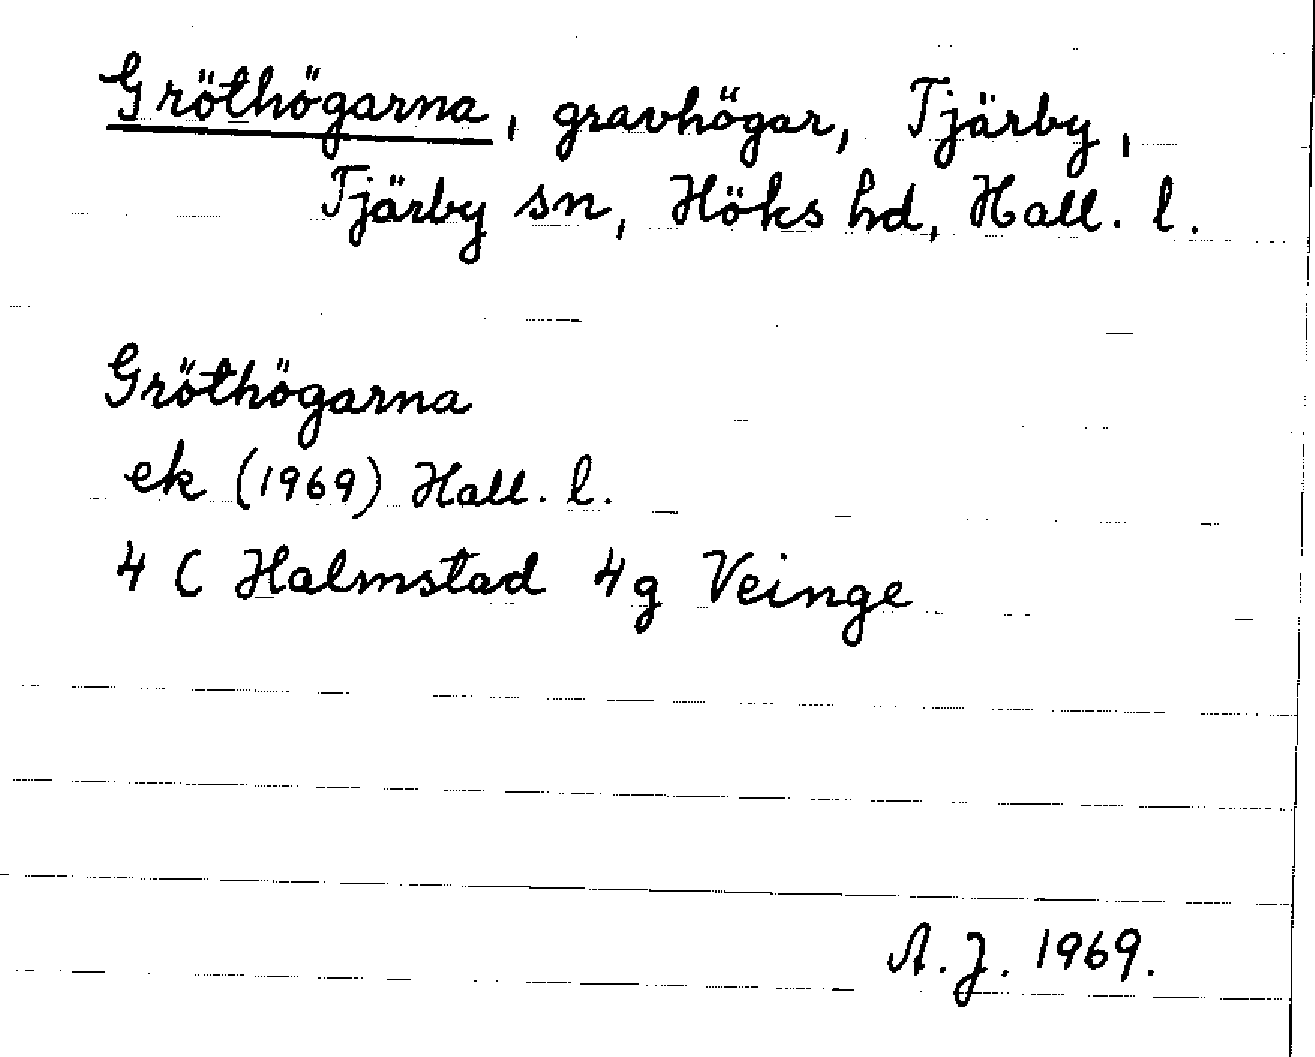 Gröthögarna, gravhögar, Tjärby,
Tjärby sn, Höks hd, Hall. l.
Gröthögarna
ek (1969) Hall. l.
4 C Halmstad 4g Veinge
A. J. 1969.